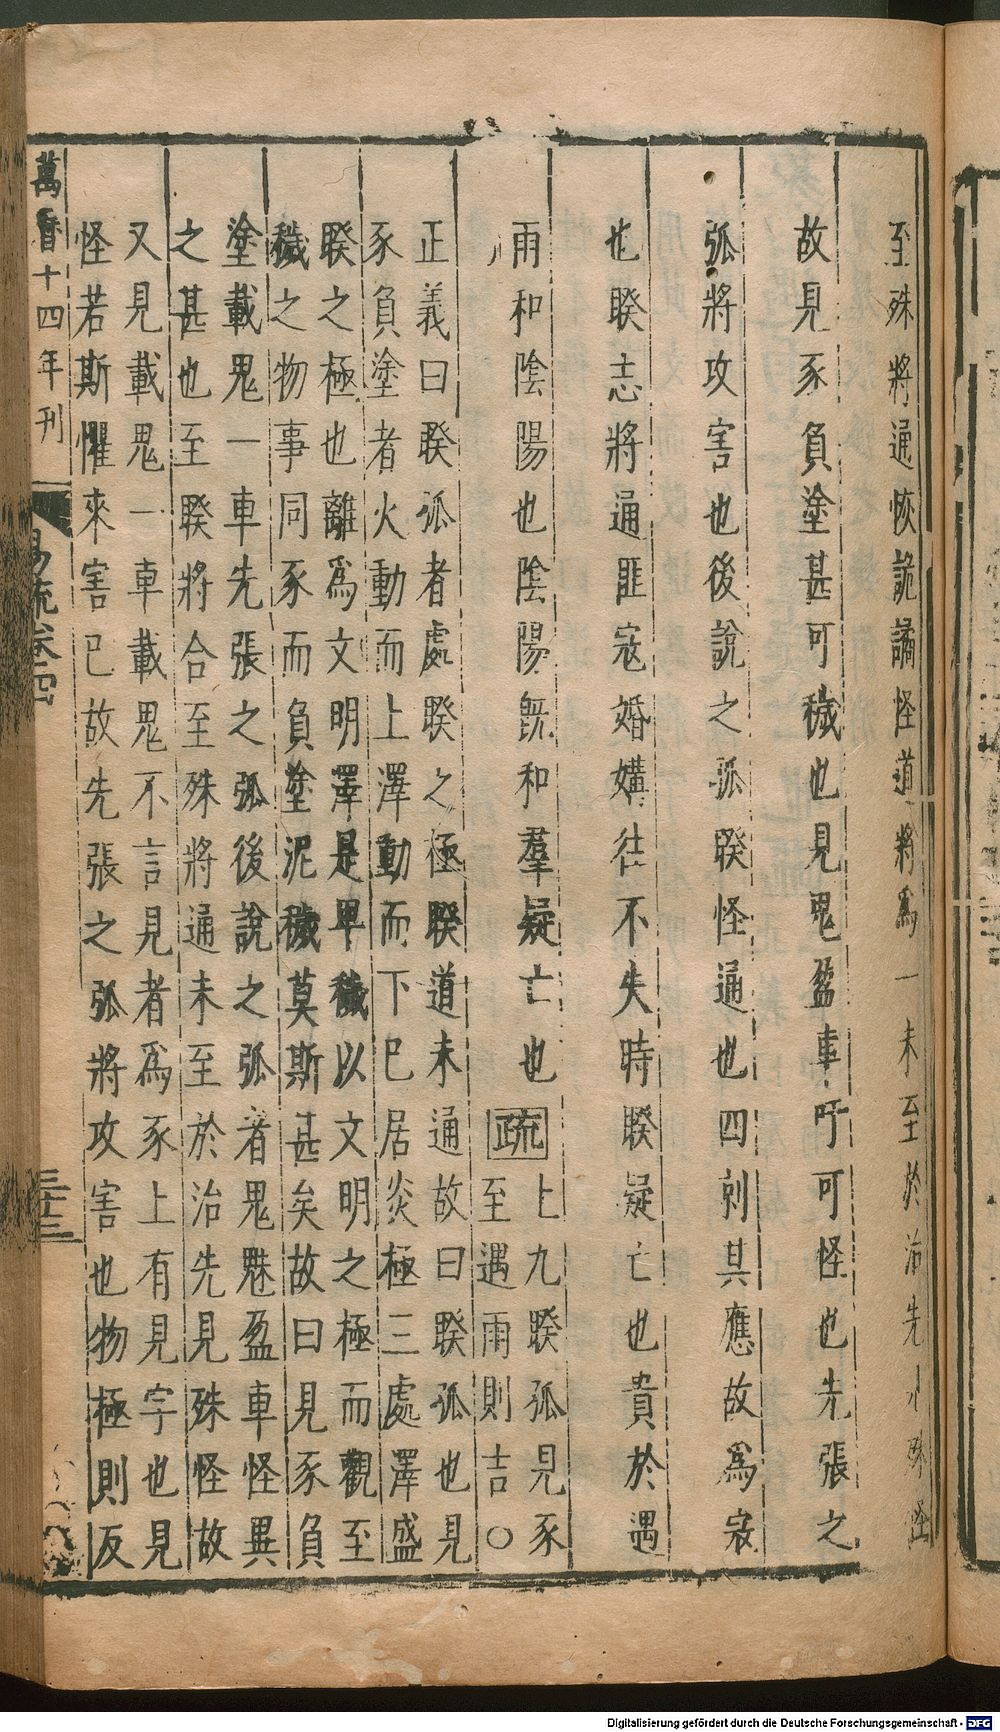 至殊將通恢詭譎怪道將爲一未至於洽先見殊怪
故見豕負塗甚可穢也見鬼盈車吁可怪也先張之
弧將攻害也後說之弧睽怪通也四剠其應故爲宼
也睽志將通匪宼婚媾徃不失時睽疑亡也貴於遇
雨和陰陽也陰陽旣和羣疑亡也
疏
上九睽孤見豕
至遇雨則吉○
正義曰睽孤者處睽之極睽道未通故曰睽孤也見
豕負塗者火動而上澤動而下巳居炎極三處澤盛
睽之極也離爲文明澤是卑穢以文明之極而觀至
穢之物事同豕而負塗泥穢莫斯甚矣故曰見豕負
塗載鬼一車先張之弧後說之弧者鬼魅盈車怪異
之甚也至睽將合至殊將通未至於治先見殊怪故
又見載鬼一車載鬼不言見者爲豕上有見字也見
怪若斯懼來害已故先張之弧將攻害也物極則反
萬曆十四年刊
易疏卷四
三十三
Digitalisierung gefördert durch die Deutsche Forschungsgemeinschaft - DFG